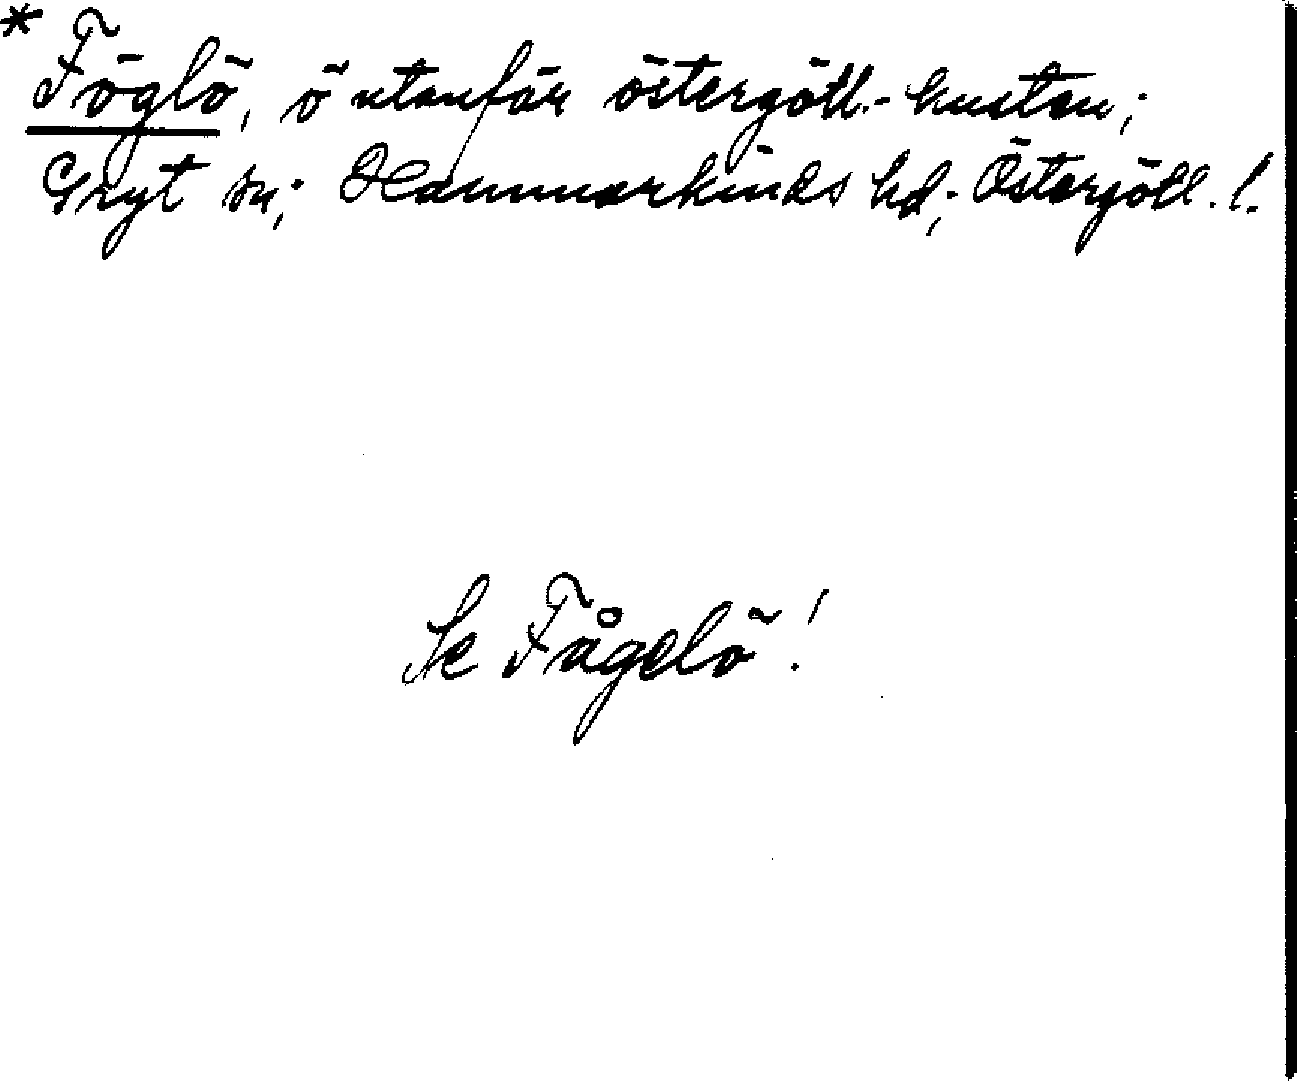 * Föglö, ö utanför östergötl.-kusten;
Gryt sn; Hammarkinds hd; Östergötl. l.
Se Fågelö!